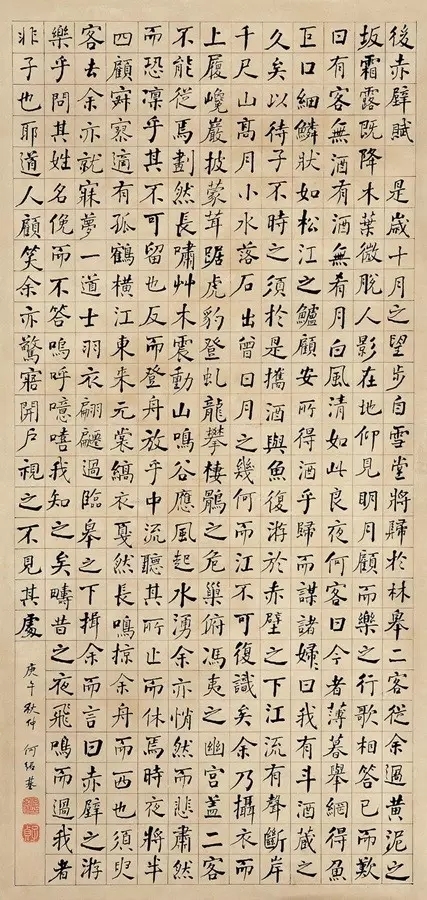 後赤壁賦 是歲十月之望步自雪堂將歸於林皋二客從余過黃泥之
坂霜露既降木葉微脫人影在地仰見明月顧而樂之行歌相答已而歎
曰有客無酒有酒無肴月白風清如此良夜何客曰今者薄暮舉網得魚
巨口細鱗狀如松江之鱸顧安所得酒乎歸而謀諸婦曰我有斗酒藏之
久矣以待子不時之須於是攜酒與魚復游於赤壁之下江流有聲斷岸
千尺山高月小水落石出曾日月之幾何而江不可復識矣余乃攝衣而
上履巉巖披蒙茸踞虎豹登虬龍攀棲鶻之危巢俯馮夷之幽宮蓋二客
不能從焉劃然長嘯艸木震動山鳴谷應風起水湧余亦悄然而悲肅然
而恐凜乎其不可留也反而登舟放乎中流聽其所止而休焉時夜將半
四顧寂寥適有孤鶴橫江東來元裳縞衣戛然長鳴掠余舟而西也須臾
客去余亦就寐夢一道士羽衣翩躚過臨皋之下揖余而言曰赤壁之游
樂乎問其姓名俛而不答嗚呼噫嘻我知之矣疇昔之夜飛鳴而過我者
非子也耶道人顧笑余亦驚寤開戶視之不見其處
庚午秋仲 何紹基